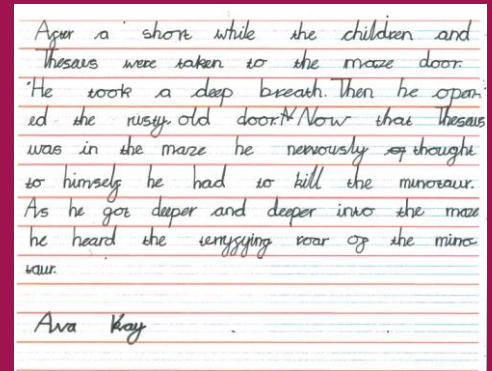 After a short while the children and
Thesaus were taken to the maze door.
He took a deep breath. Then he open-
ed the rusty old door. Now that Thesaus
was in the maze he nervously thought
to himself he had to kill the minotaur.
As he got deeper and deeper into the maze
he heard the terryfying roar of the mino
taur.
Ava Kay